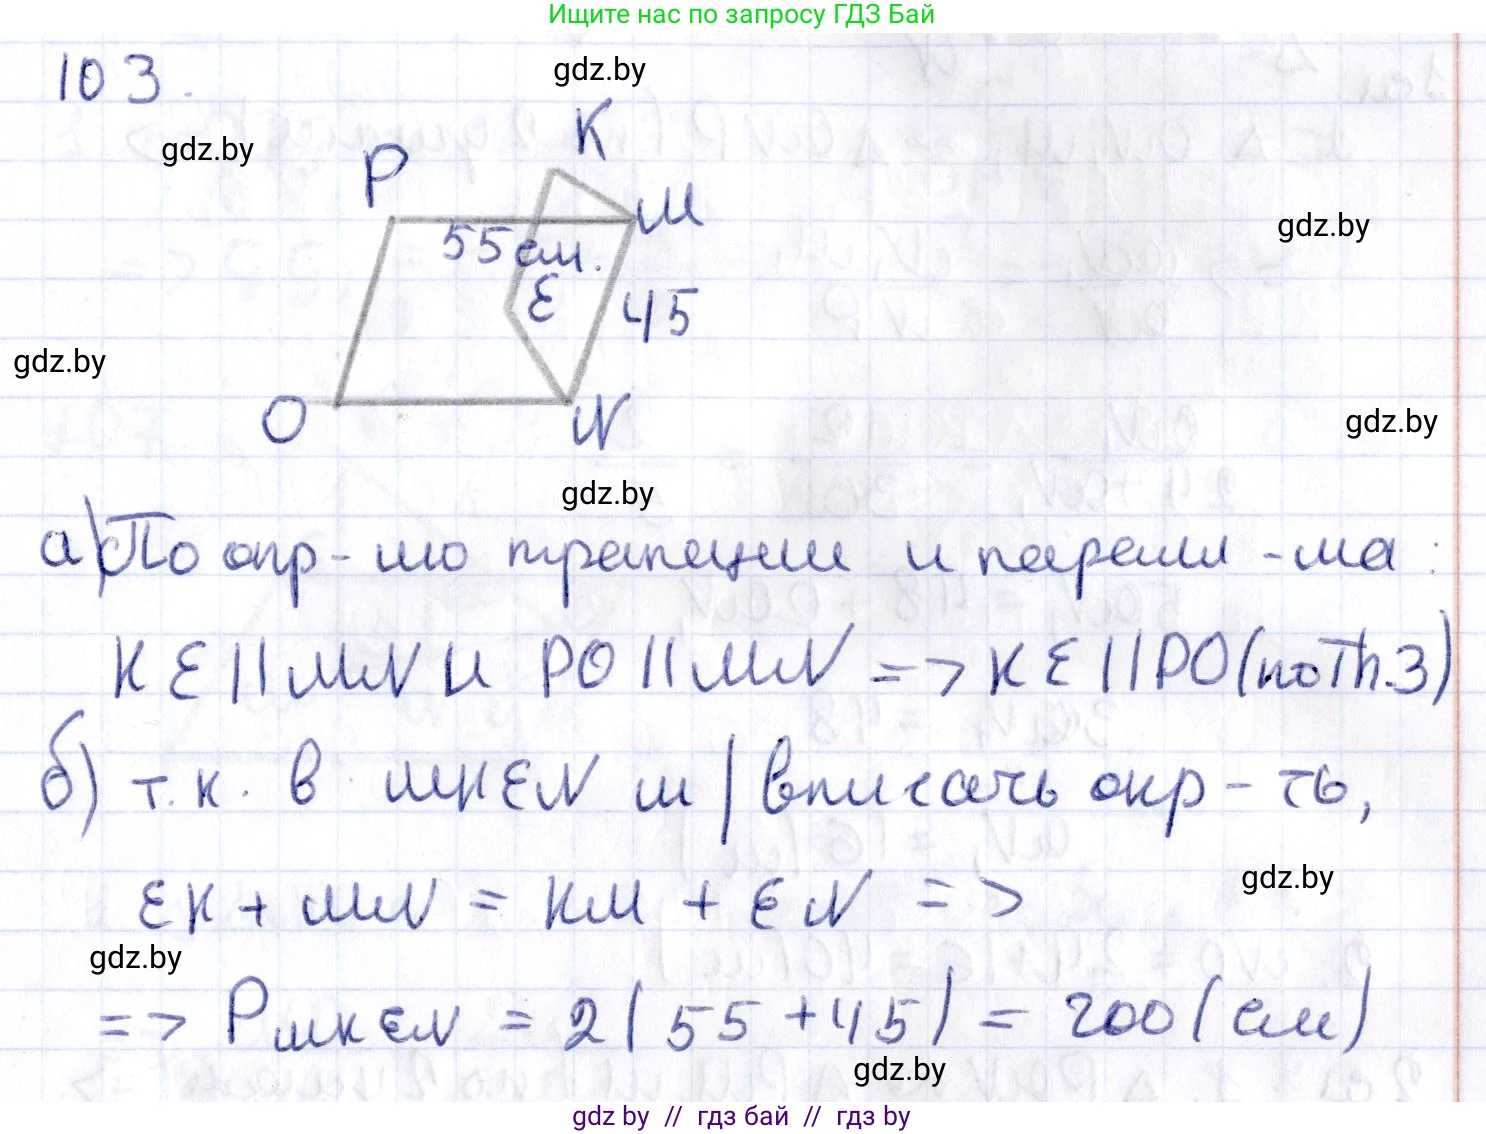 Ищите нас по запросу ГДЗ Бай
103.
gdz.by
gdz.by
K
P
M
gdz.by
55 см.
E
45
gdz.by
O
N
gdz.by
gdz.by
а) По опр-июю трапеции и паралл-ма:
KE || MN и PO || MN => KE || PO (по Th.3)
б) т.к. в MKEN м/вписать окр-ть,
EK + MN = KM + EN =>
gdz.by
gdz.by
=> P MKEN = 2(55 + 45) = 200 (см)
gdz.by
gdz by // гдз бай // гдз by